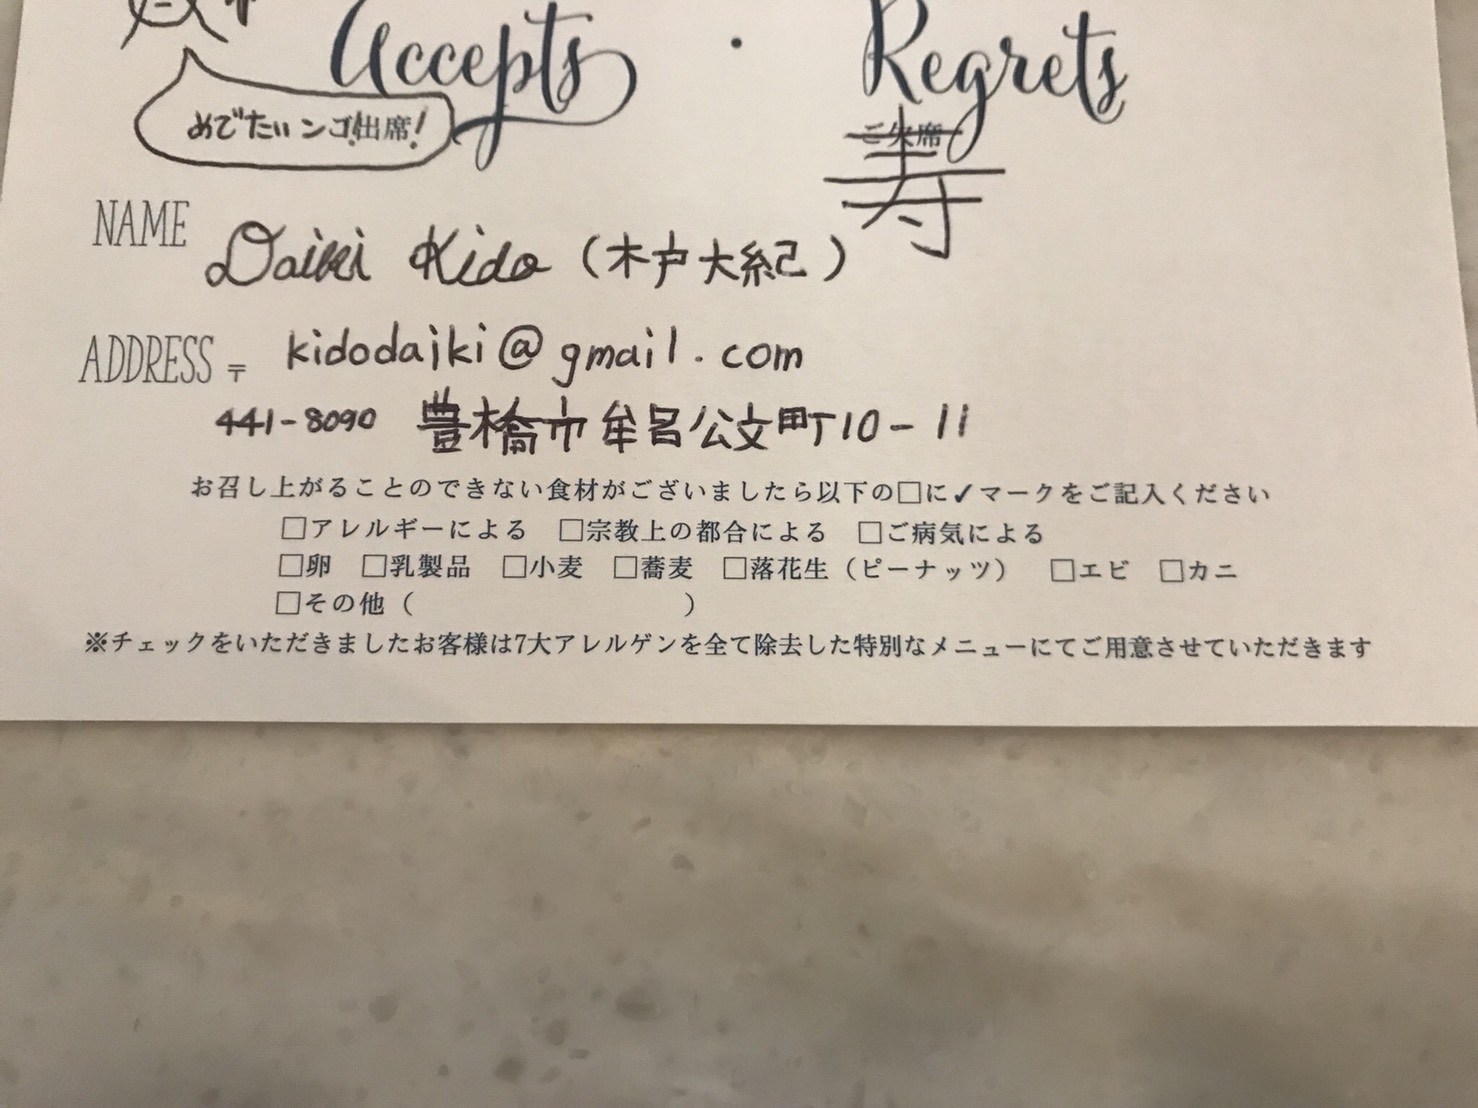 Accepts ・ Regrets
めでたいンゴ!出席! ご欠席
寿
NAME Daiki Kido (木戸大紀)
ADDRESS 〒 kidodaiki@gmail.com
441-8090 豊橋市牟呂公文町10-11
お召し上がることのできない食材がございましたら以下の□に✓マークをご記入ください
□アレルギーによる □宗教上の都合による □ご病気による
□卵 □乳製品 □小麦 □蕎麦 □落花生（ピーナッツ） □エビ □カニ
□その他（ ）
※チェックをいただきましたお客様は7大アレルゲンを全て除去した特別なメニューにてご用意させていただきます